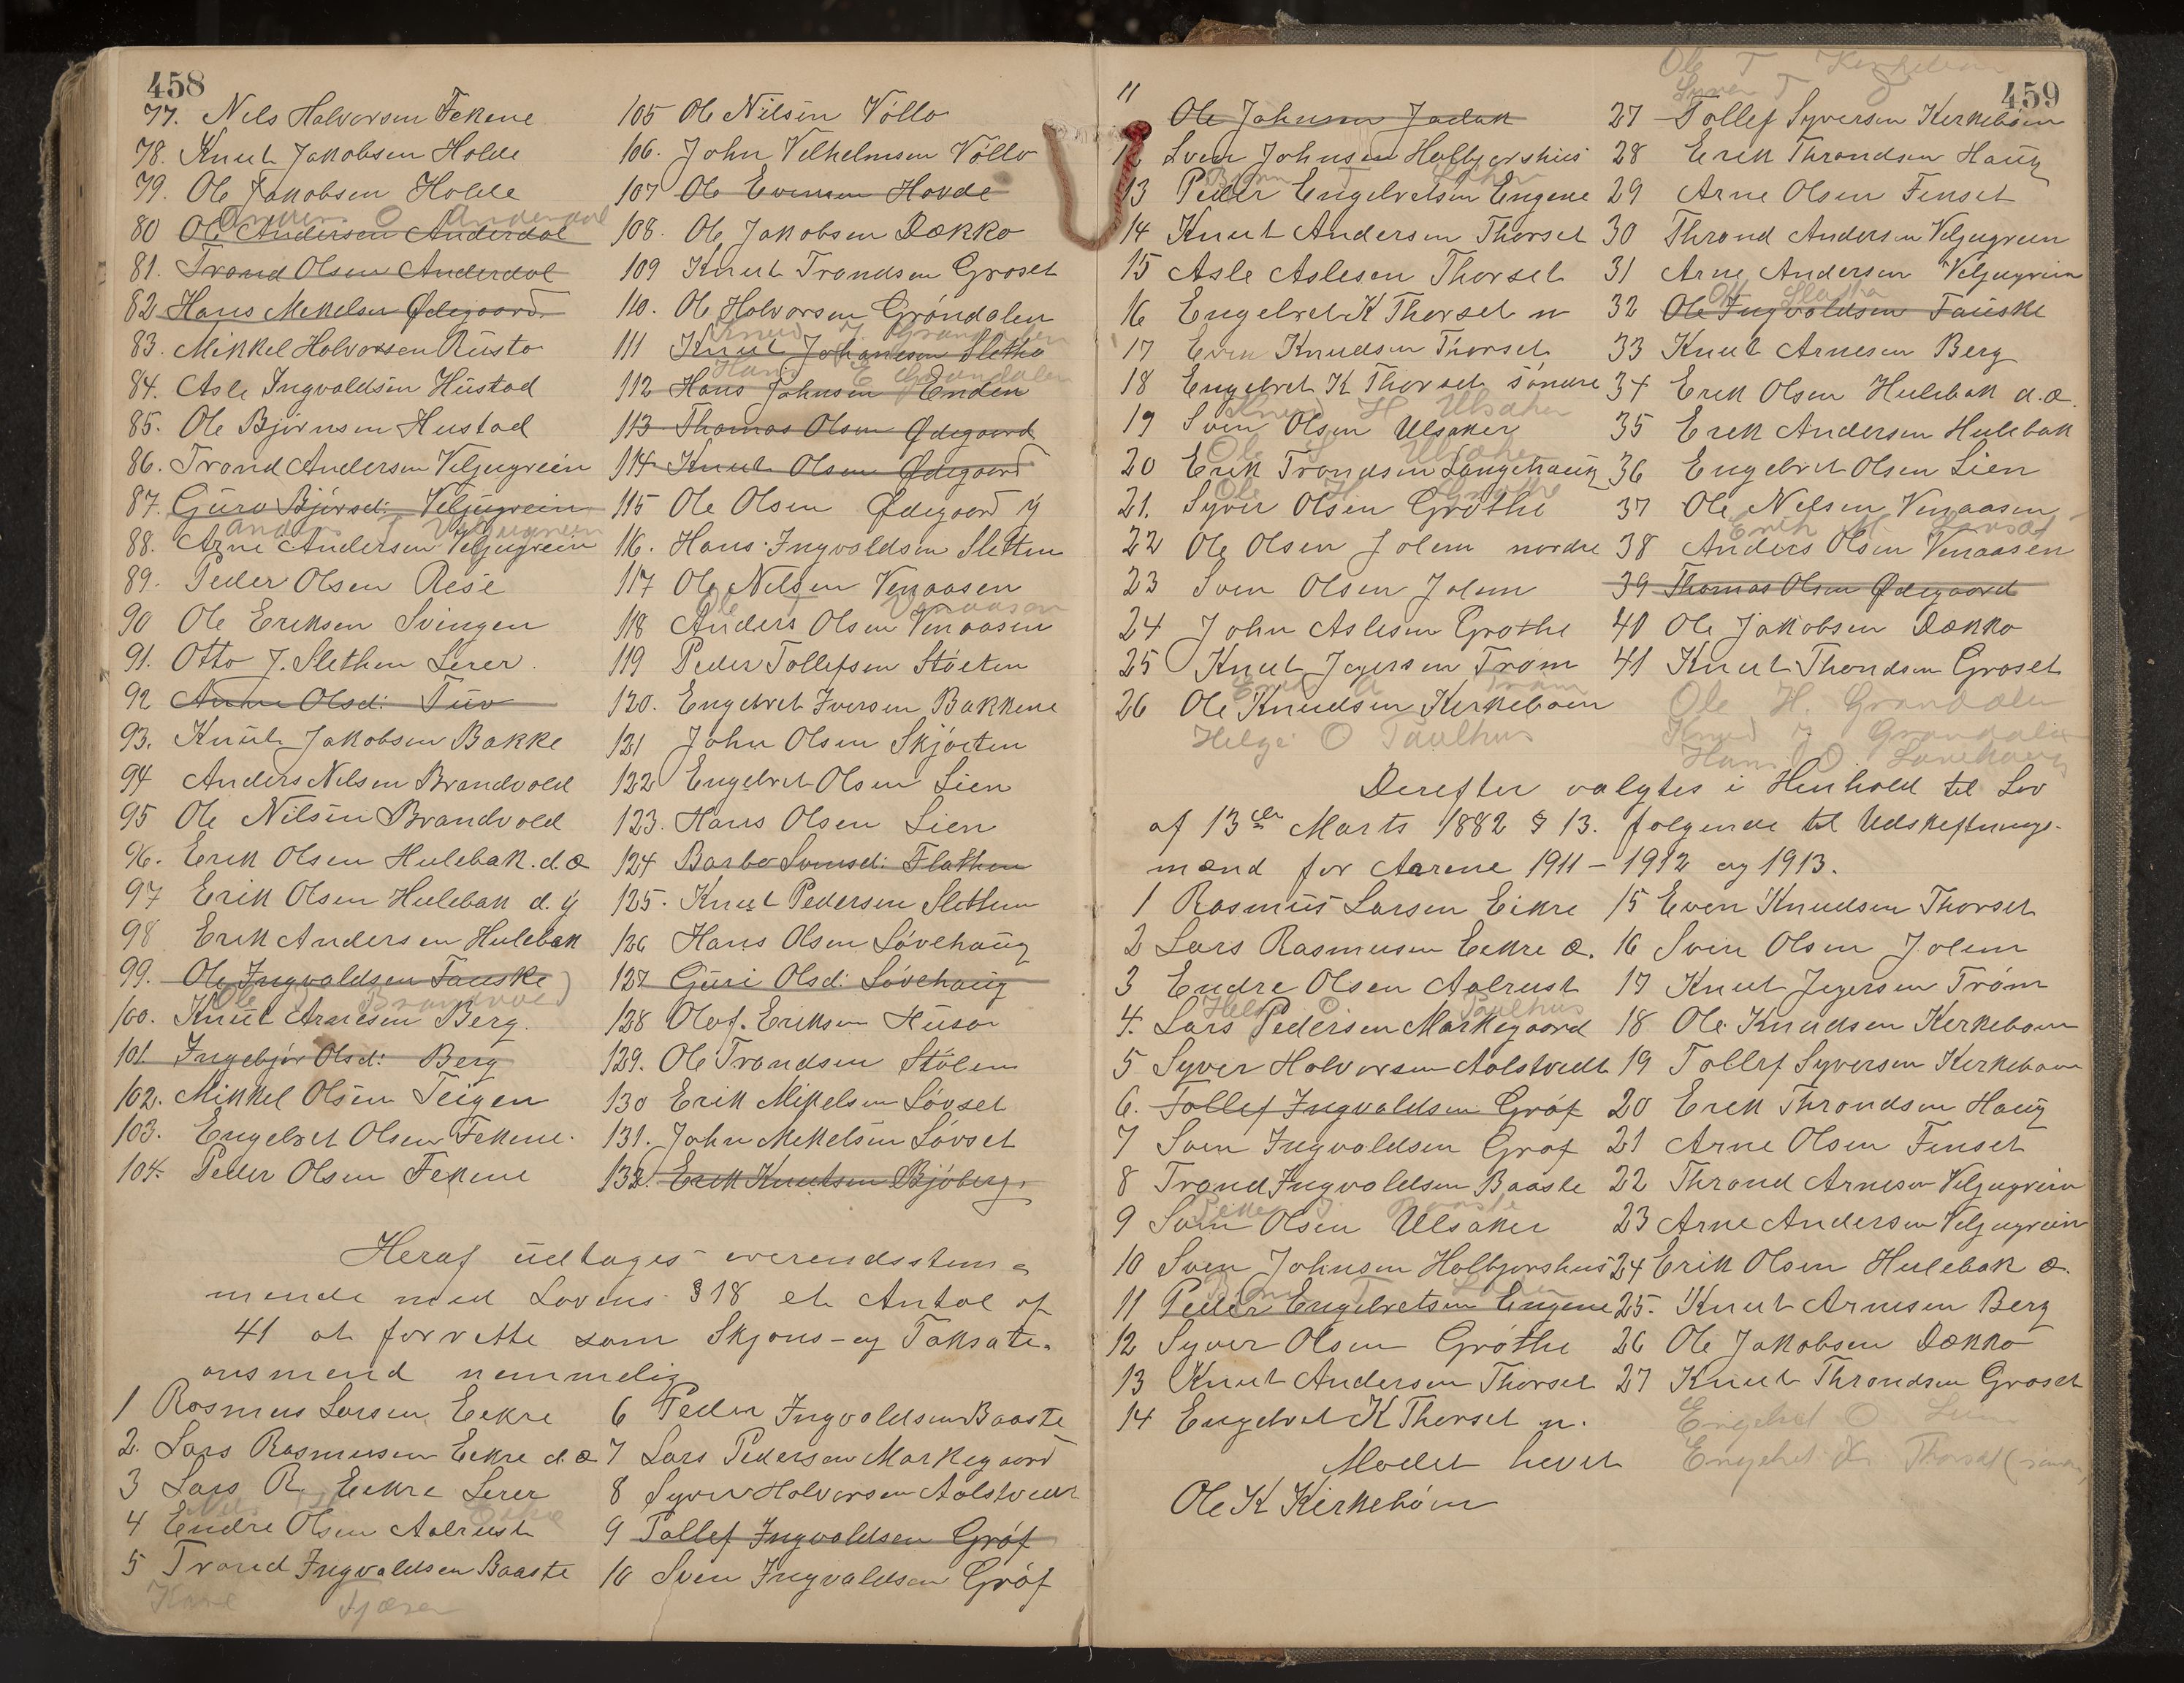 458
77. Nels Halvorsen Fekene
78. Knut Jakobsen Holde
79. Ole Jakobsen Holde
Anders O Anderdal
80 Ole Andersen Anderdal
81. Trond Olsen Anderdal
82 Hans Mekelsen Ødegaard
83. Mikkel Halvorsen Rusto
84. Asle Ingvaldsen Hustad
85. Ole Bjørnsen Hustad
86. Trond Andersen Veljugrein
87. Guro Bjørsd: Veljugrein
Anders T Veljugrein
88. Arne Andersen Veljugrein
89. Peder Olsen Rese
90 Ole Eriksen Svingen
91. Otto J. Slethen Lerer.
92 Olsd: Tuv
93. Knut Jakobsen Bakke
94 Anders Nilsen Brandvold
95 Ole Nilsen Brandvold
96. Erik Olsen Hulebak. d. æ
97 Erik Olsen Hulebak d. y
98 Erik Andersen Hulebak
99. Ole Ingvaldsen Fauske
Ole Brandvold
100. Knut Arnesen Berg.
101. Ingebjør Olsd: Berg
102. Mikkel Olsen Teigen
103. Engebret Olsen Fekene.
104. Peder Olsen Fekene
105 Ole Nilsen Vøllo
106. John Velhelmsen Vøllo
107 Ole Evensen Hovde
108. Ole Jakobsen Dækko
109 Knut Trondsen Groset
110. Ole Halvorsen Grøndalen
Knud J. Grøndalen
111 Knut Johannesen Sletto
Hans E Grøndalen
112 Hans Johnsen Enden
113 Thomas Olsen Ødegaard
114 Knut Olsen Ødegaard
115 Ole Olsen Ødegaard y
116. Hans Ingvaldsen Sletten
117 Ole Nelsen Venaasen
Ole Venaasen
118 Anders Olsen Venaasen
119 Peder Tollefsen Støeten
120. Engebret Iversen Bakkene
121 John Olsen Skjøeten
122 Engebret Olsen Lien
123. Hans Olsen Lien
124 Barbo Svensd: Flathen
125. Knut Pedersen Slethen
126 Hans Olsen Løvehaug
127 Guri Olsd: Løvehaug
128 Olof. Eriksen Huso
129. Ole Trondsen Stølen
130 Erik Mikelsen Løvset
131. John Mekelsen Løvset
132. Erik Knutsen Bjøberg.
Heraf udtages overensstem=
mende med Lovens §18 et Antal af
41 at forrette som Skjøns- og Taksati=
onsmend nemmelig
1 Rasmus Larsen Eikre
2. Lars Rasmusen Eekre d. æ
3 Lars R. Eekre Lerer
4 Endre Olsen Aalrust
5 Trond Ingvaldsen Baaste
6 Peder Ingvaldsen Baaste
7 Lars Pedersen Markegaard
8 Syver Halvorsen Aalstvedt
9 Tollef Ingvaldsen Grøf
10 Sven Ingvaldsen Grøf
459
11 Ole Johnsen
12 Sven Johnsen Holbjørshus
13 Peder Engebretsen Engene
14 Knut Andersen Thorset
15 Asle Aslesen Thorset
16 Engebret K Thorset n
17 Even Knudsen Thorset
18 Engebret K Thorset søndre
Knud H Ulsaker
19 Sven Olsen Ulsaker
Ole Ulsaker
20 Erik Trondsen Langehaug
Ole H Grøthe
21. Syver Olsen Grøthe
22 Ole Olsen Jolem nordre
23 Sven Olsen Jolem
24 John Aslesen Grøthe
25 Knut Jegersen Trøm
Trøm
26 Ole Knudsen Kirkebøen
Helge O Paulhus
Ole T Kirkebøen
Syver T
27 Tollef Syversen Kirkebøen
28 Erik Throndsen Haug
29 Arne Olsen Finset
30 Thrond Andersen Veljugrein
31 Arne Andersen Veljugrein
32 Ole Ingvaldsen Fauske
33 Knut Arnesen Berg
34 Erik Olsen Hulebak d. æ.
35 Erik Andersen Hulebak
36 Engebret Olsen Lien
37 Ole Nelsen Venaasen
Erik M. Løvset
38 Anders Olsen Venaasen
39 Thomas Olsen Ødegaard
40 Ole Jakobsen Dækko
41 Knut Throndsen Groset
Ole H. Grøndalen
Knud J Grøndalen
Hans O Løvehaug
Derefter valgtes i Henhold til Lov
af 13de Marts 1882 § 13. følgende til Udskeftnings-
mænd for Aarene 1911 – 1912 og 1913.
1 Rasmus Larsen Eikre
2 Lars Rasmusen Eekre æ.
3 Endre Olsen Aalrust
Helge O Paulhus
4. Lars Pedersen Markegaard
5 Syver Halvorsen Aalstvedt
6. Tollef Ingvaldsen Grøf
7 Sven Ingvaldsen Grøf
8 Trond Ingvaldsen Baaste
9 Sven Olsen Ulsaker
10 Sven Johnsen Holbjørshus
11 Peder Engebretsen Engene
12 Syver Olsen Grøthe
13 Knut Andersen Thorset
14 Engebret K Thorset n.
15 Even Knudsen Thorset
16 Sven Olsen Jolem
17 Knut Jegersen Trøm
18 Ole Knudsen Kirkebøen
19 Tollef Syversen Kirkebøen
20 Erik Throndsen Haug
21 Arne Olsen Finset
22 Thrond Arnesen Veljugrein
23 Arne Andersen Veljugrein
24 Erik Olsen Hulebak æ.
25. Knut Arnesen Berg
26 Ole Jakobsen Dækko
27 Knut Throndsen Groset
Engebret O Lien
Engebret K Thorset
Mødet hevet
Ole K Kirkebøen